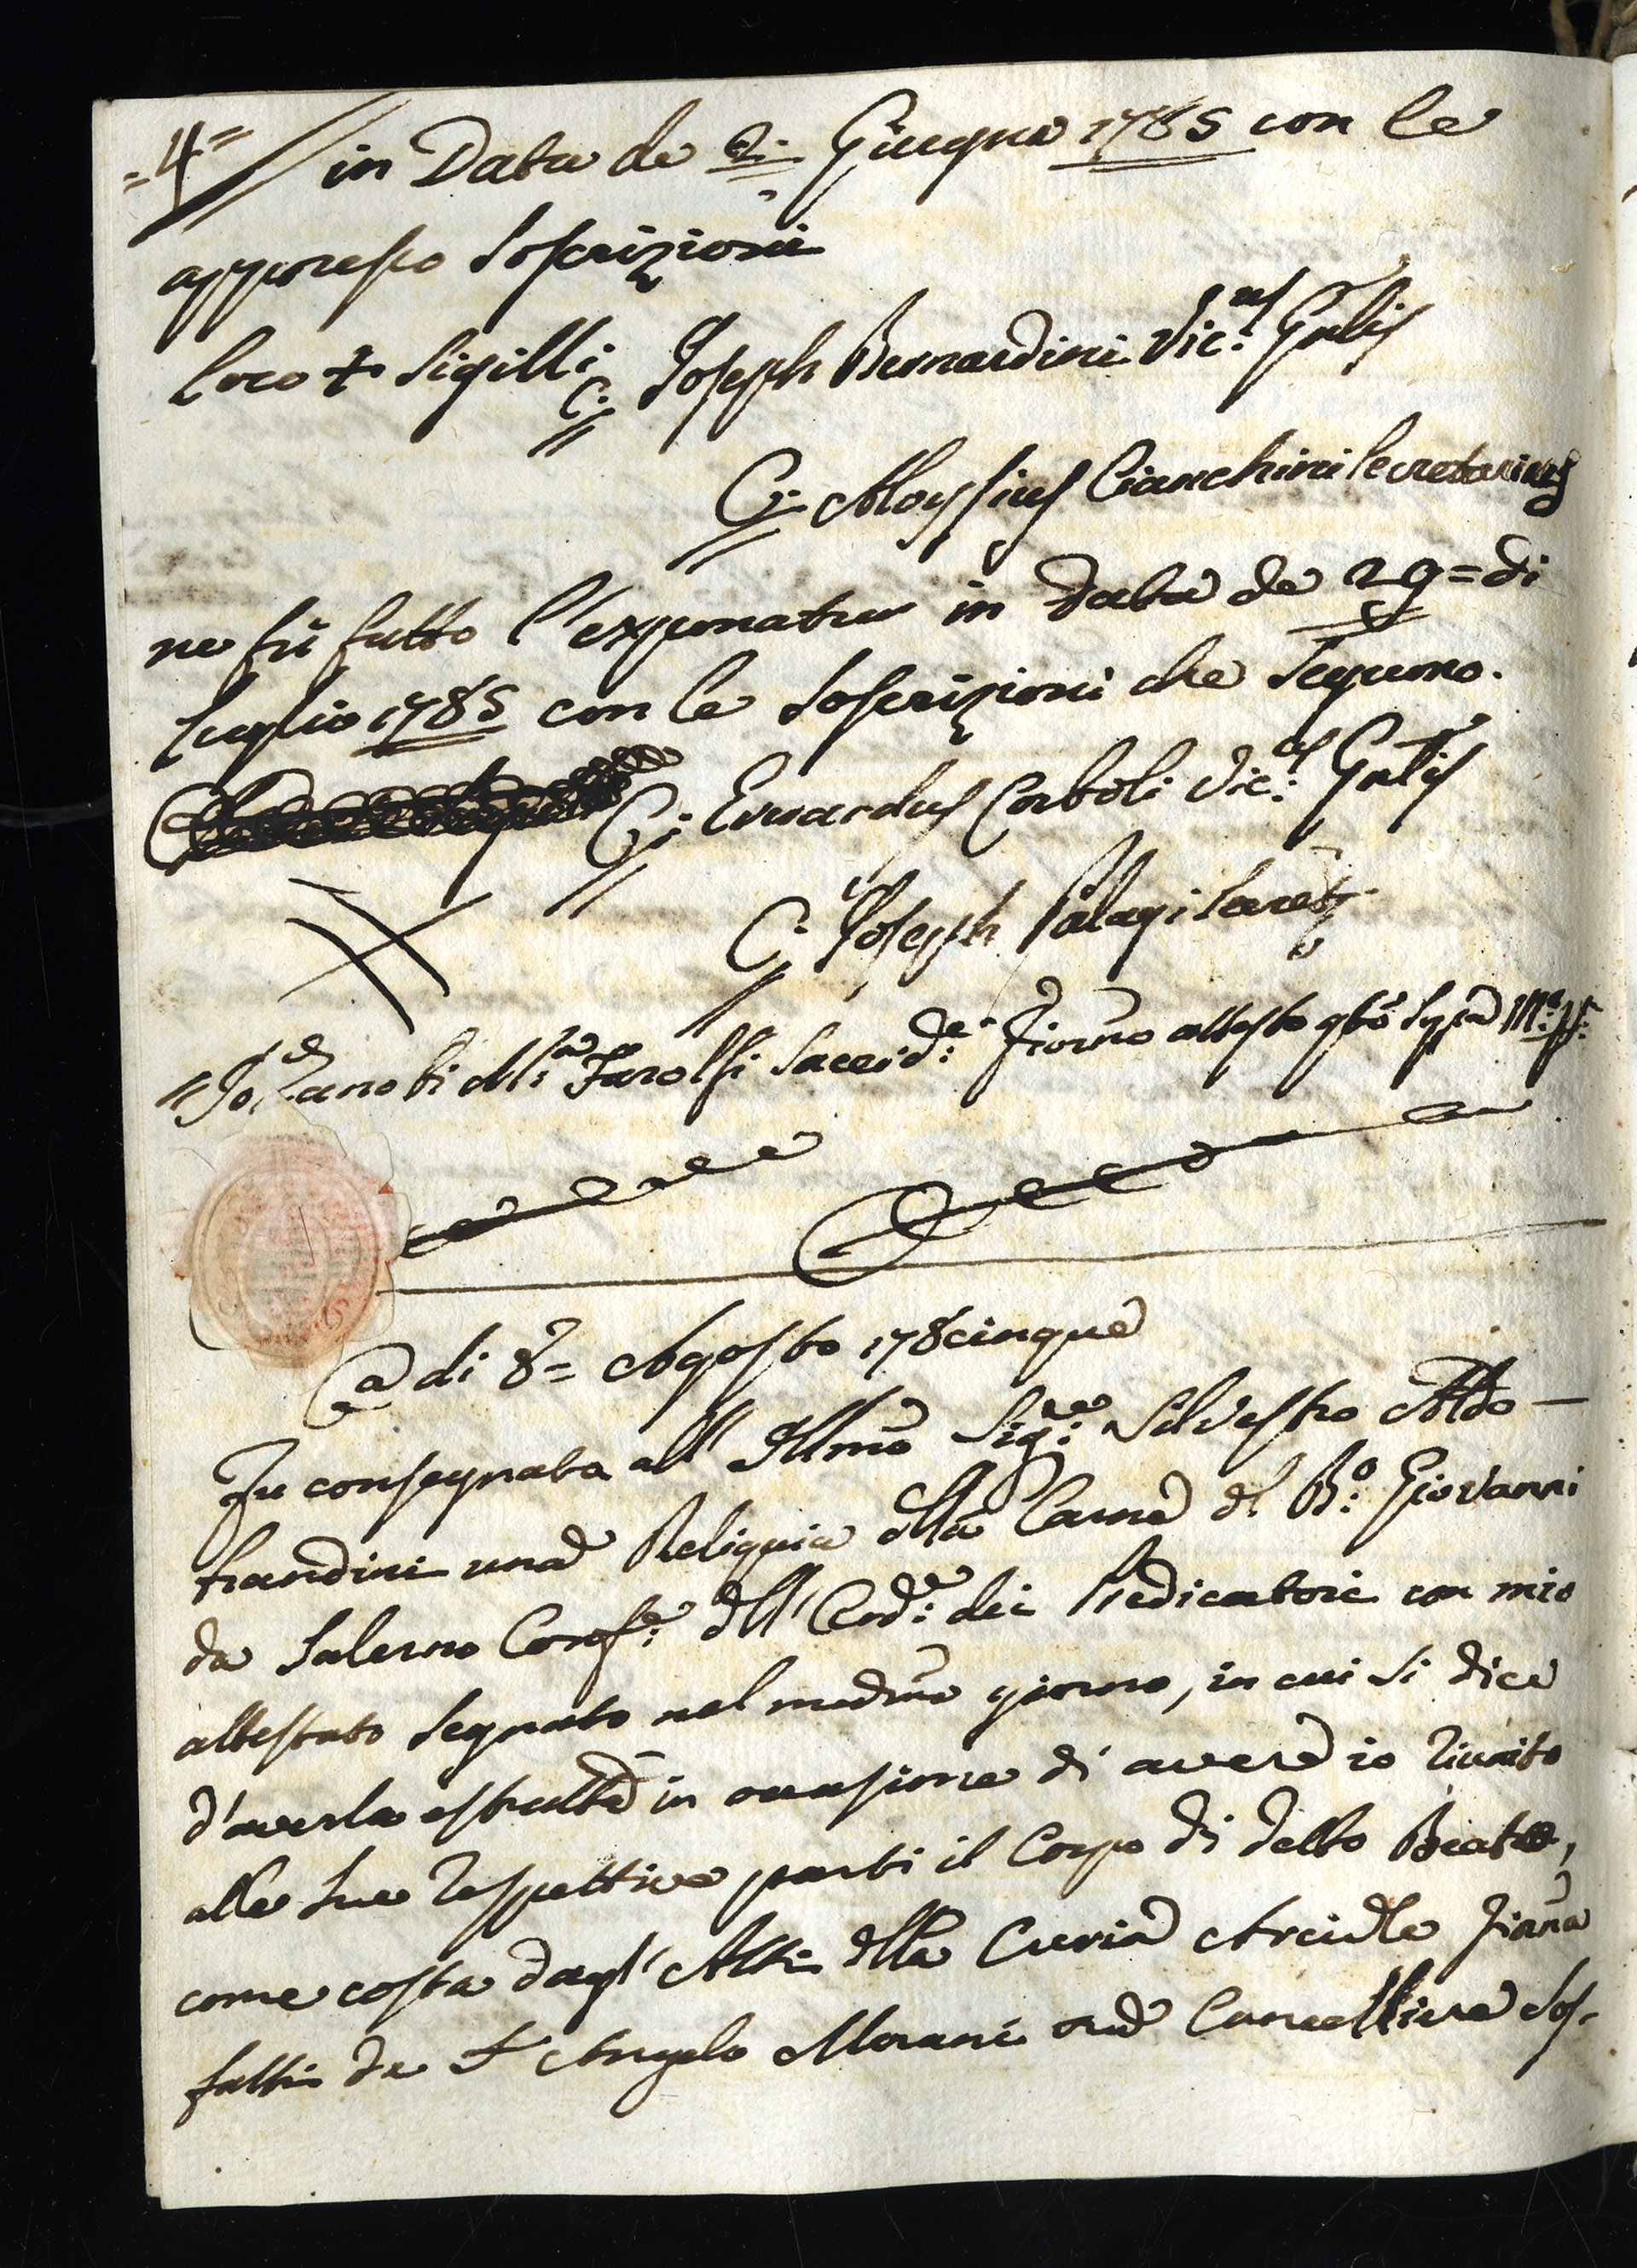 =4= in Data de 2: Giugno 1785 con le
appresso soscrizioni
Loco + Sigilli C: Joseph Bernardini Vic:us Gñlis
C: Aloysius Cianchini Secretarius
ne fù fatto l'exponatur in data de 29= di
Luglio 1785 con le soscrizioni che seguono.
C: Everardus Corboli Vic:us Gñlis
C: Joseph Palagi Secret.
Io Zanobi Ma Farolfi Sacerd:e Fiorno attesto qto sopra M: pp:
@ di 8= Agosto 178cinque
Fu consegnata all' Illmo Sigre: Silvestro Aldo-
brandini una Reliquia della Carne dl Bo: Giovanni
da Salerno Conf:e dll' Ord:e dei Predicatori con mio
attestato segnato nel medmo giorno, in cui si dice
d'averla estratta in occasione di avere io riunito
alle sue respettive parti il Corpo di detto Beato,
come costa dagl' Atti dlla Curia Arcivle Fiorna
fatti da Angelo Morani ora Cancelliere sos-